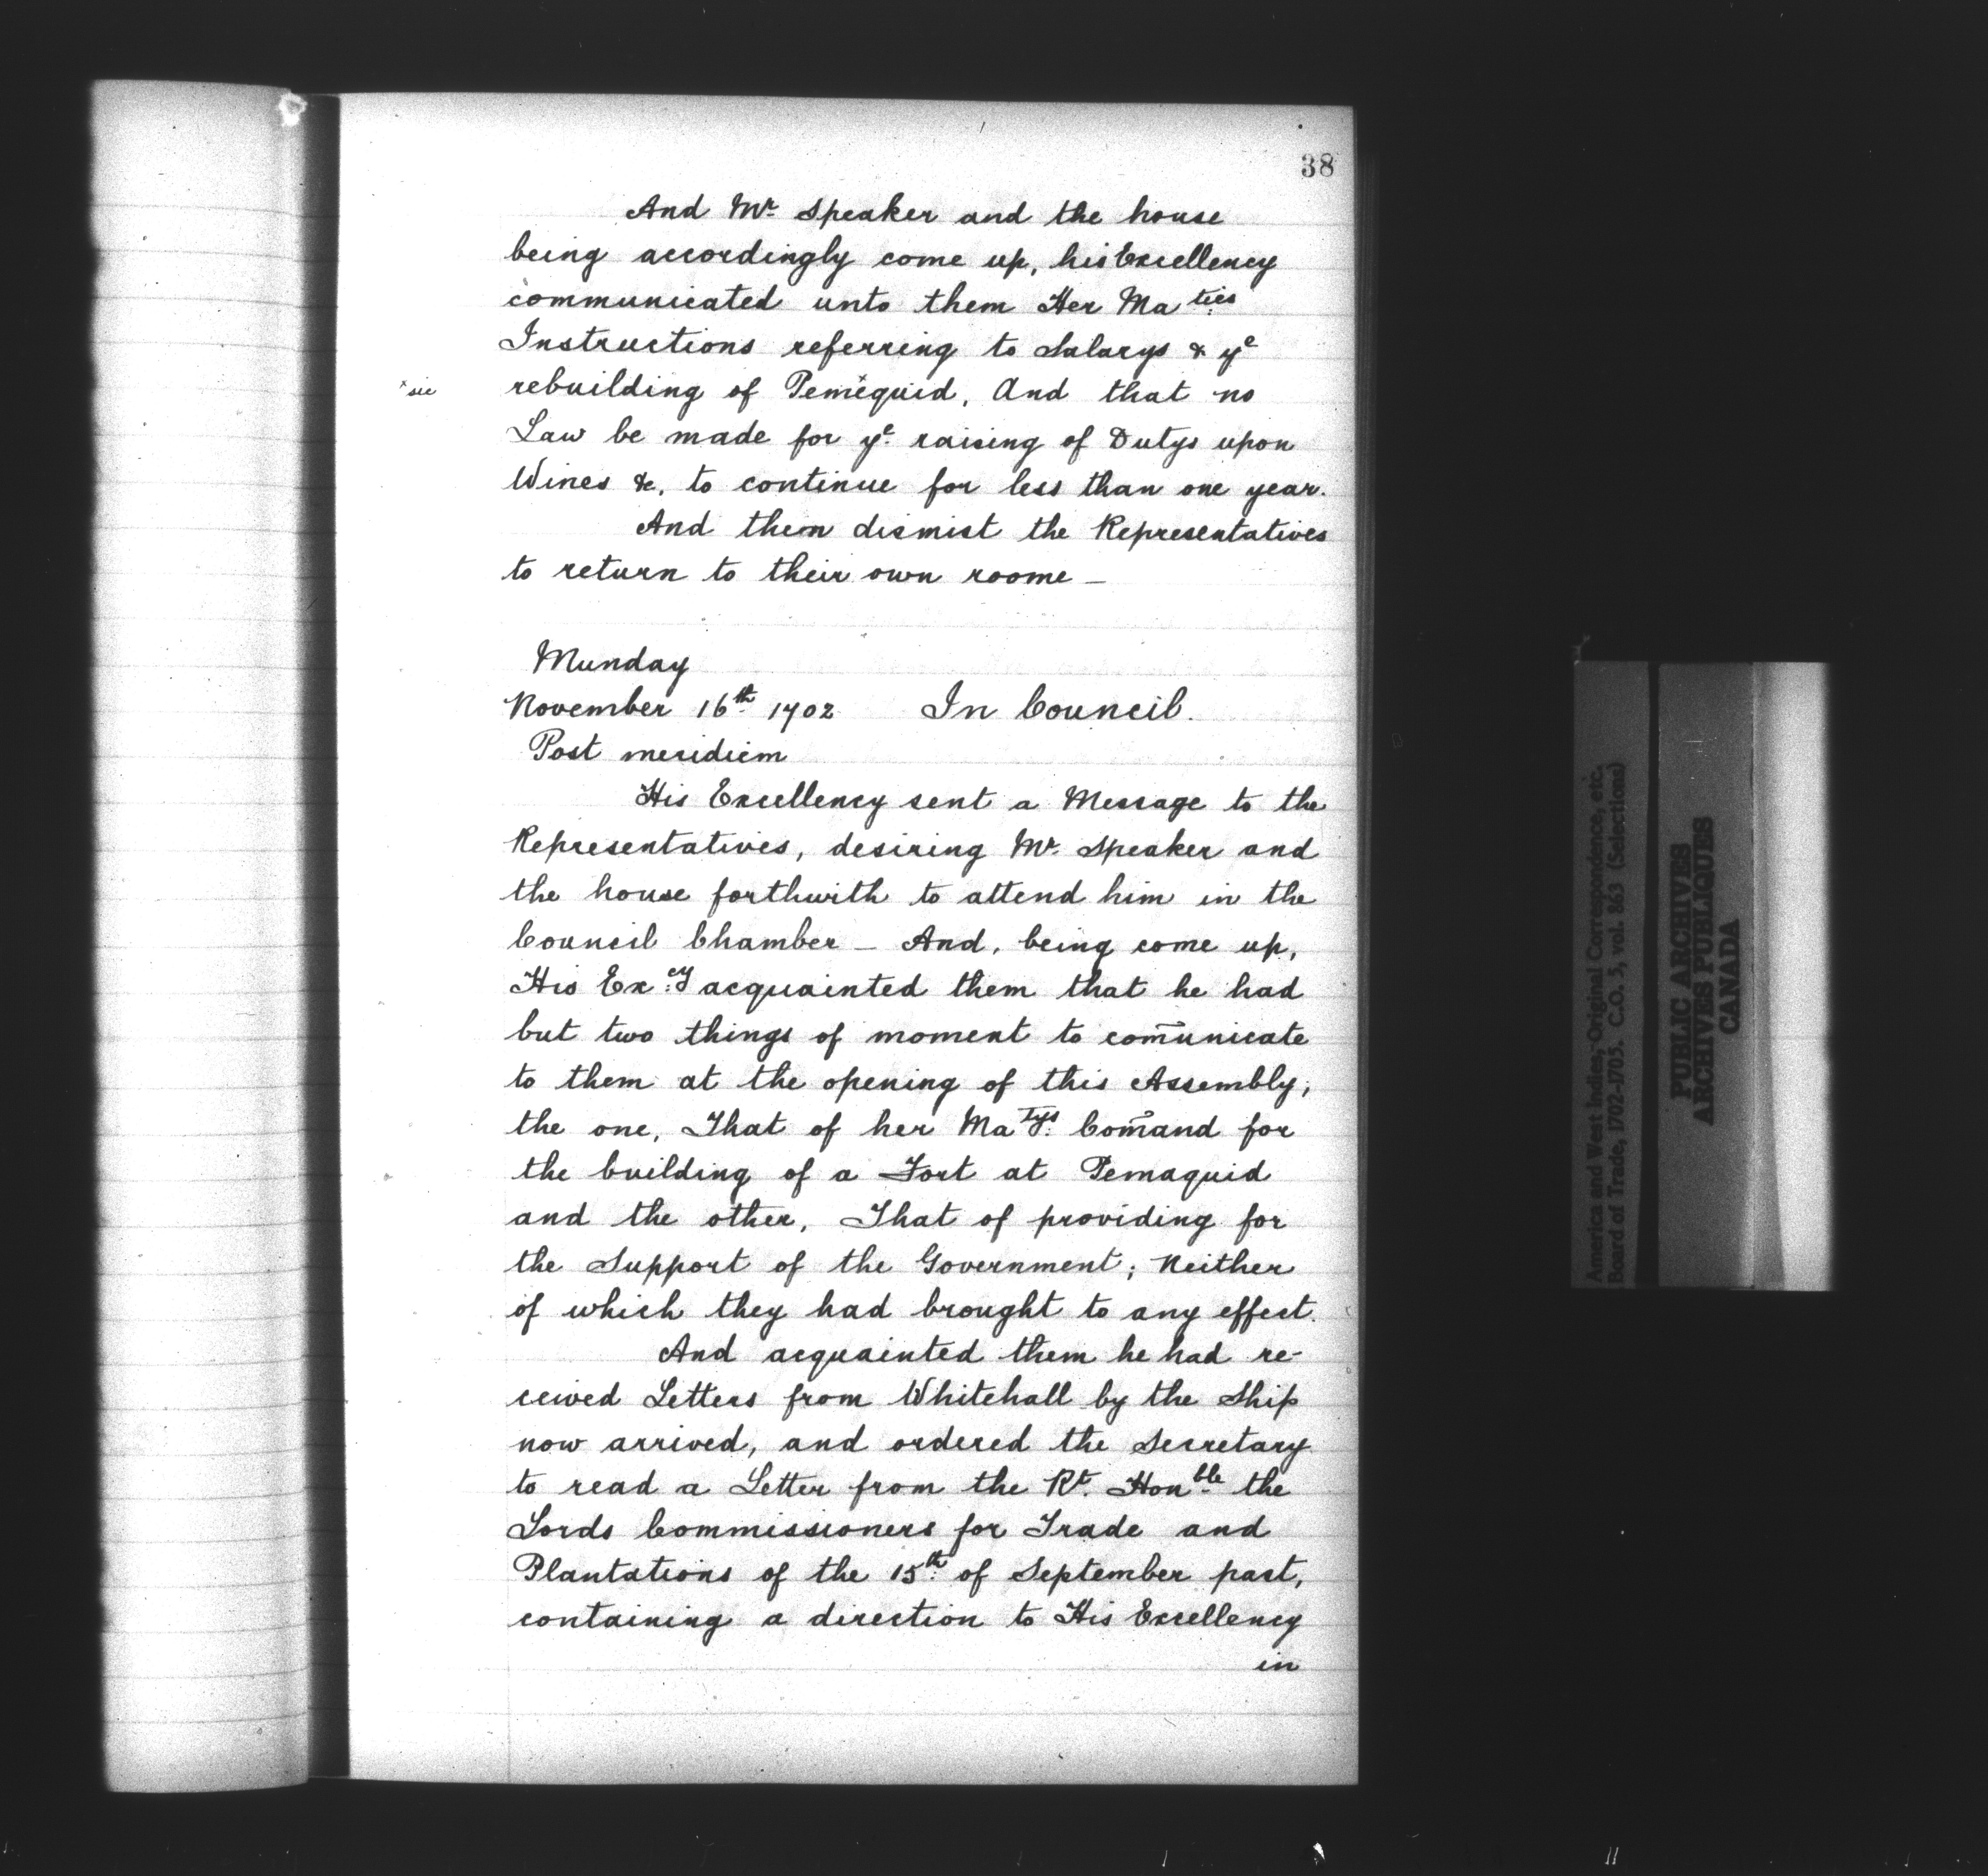 38
And Mr. Speaker and the house
being accordingly come up, his Excellency
communicated unto them Her Maties
Instructions referring to Salarys & ye
x sic rebuilding of Pemequid, And that no
Law be made for ye. raising of Dutys upon
Wines &c, to continue for less than one year.
And them dismist the Representatives
to return to their own roome —
Munday
November 16th 1702 In Council.
Post meridiem
His Excellency sent a Message to the
Representatives, desiring Mr. Speaker and
the house forthwith to attend him in the
Council Chamber — And, being come up,
His Excy acquainted them that he had
but two things of moment to com̄unicate
to them at the opening of this Assembly;
the one, That of her Matys. Com̄and for
the building of a Fort at Pemaquid
and the other, That of providing for
the Support of the Government; Neither
of which they had brought to any effect.
And acquainted them he had re-
ceived Letters from Whitehall by the Ship
now arrived, and ordered the Secretary
to read a Letter from the Rt. Honble the
Lords Commissioners for Trade and
Plantations of the 15th of September past,
containing a direction to His Excellency
in
America and West Indies, Original Correspondence, etc.
Board of Trade, 1702-1703. C.O. 5, vol. 863 (Selections)
PUBLIC ARCHIVES
ARCHIVES PUBLIQUES
CANADA